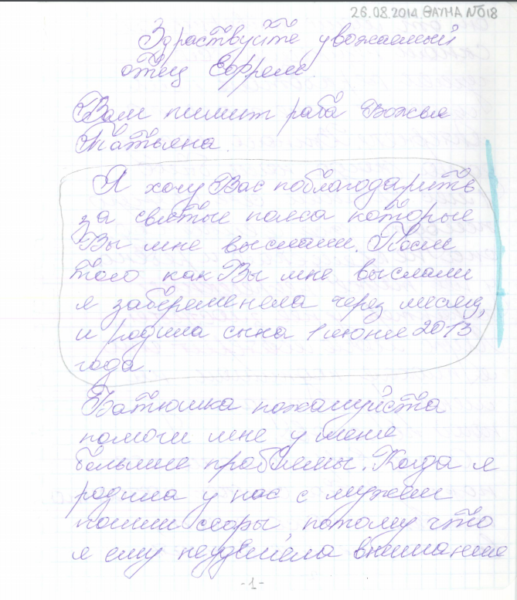 26.08.2014 ΘΑΥΜΑ №018
Здраствуйте уважаемый
отец Ефрем.
Вам пишит раба Божья
Татьяна.
Я хочу Вас поблагодарить
за святые пояса которые
Вы мне выслали. После
того как Вы мне выслали
я забеременела через месяц,
и родила сына 1 июня 2013
года.
Батюшка пожалуйста
помоги мне у меня
большие проблемы. Когда я
родила у нас с мужем
пошли ссоры, потому что
я ему неуделела внимание
-1-